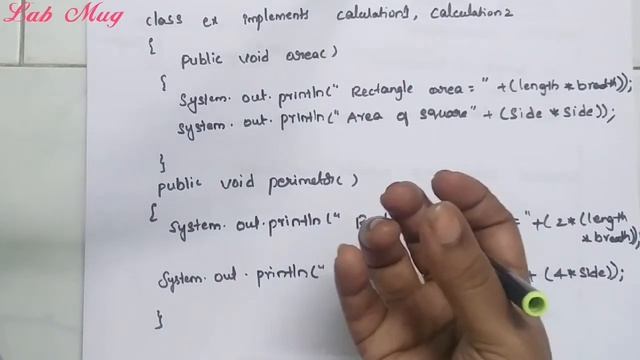 Lab Mug
class ex implements calulation1, calculation2
{
public void area()
{
System.out.println(" Rectangle area = " +(length * breadth));
System.out.println(" Area of square" + (Side * Side));
}
public void perimeter()
{
System.out.println(" = "+( 2*(length
* breadth));
System.out.println(" + (4* Side));
}